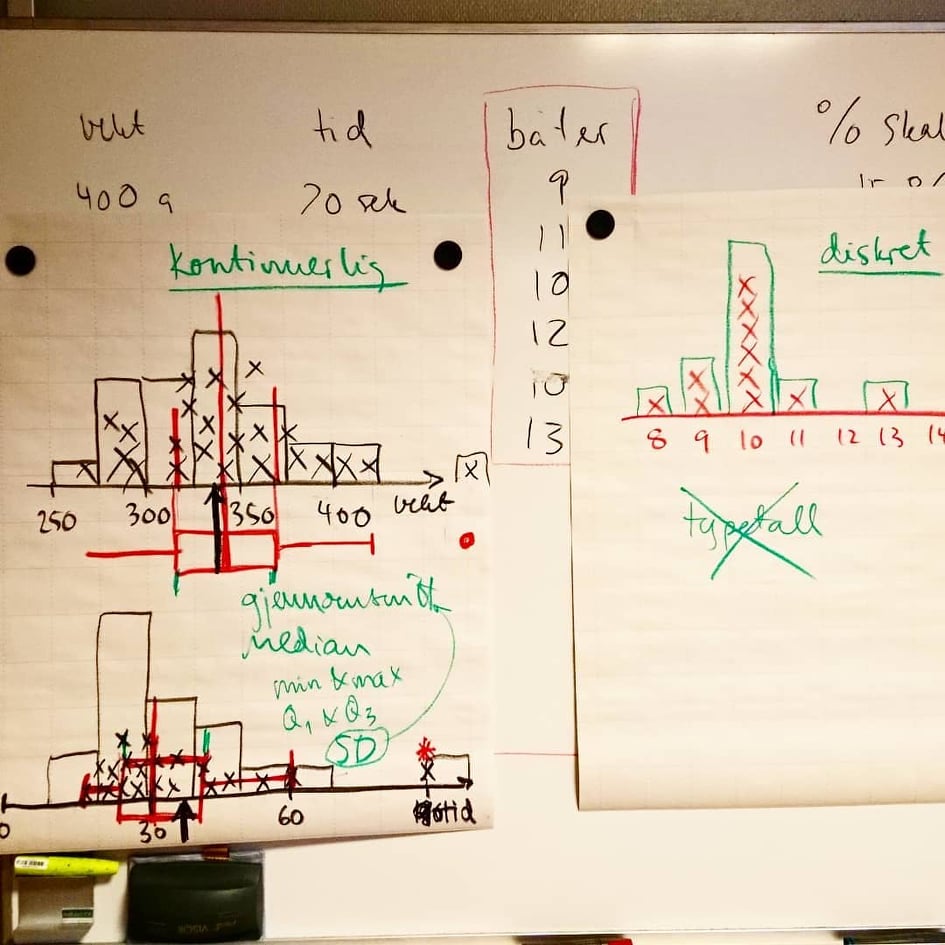 vekt
tid
båter
% Skal
400 g
70 sek
9
11
10
12
10
13
kontinuerlig
250 300 350 400 vekt
gjennomsnitt
median
min & max
Q1 & Q3
SD
0 30 60 tid
diskret
8 9 10 11 12 13 14
typetall